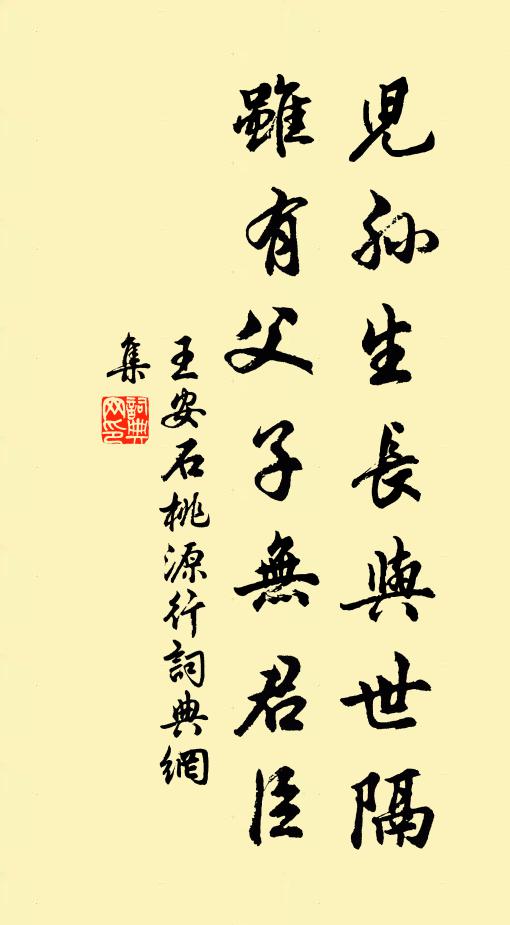 兒孫生長與世隔
雖有父子無君臣
王安石桃源行詞典網
集
詞典網印